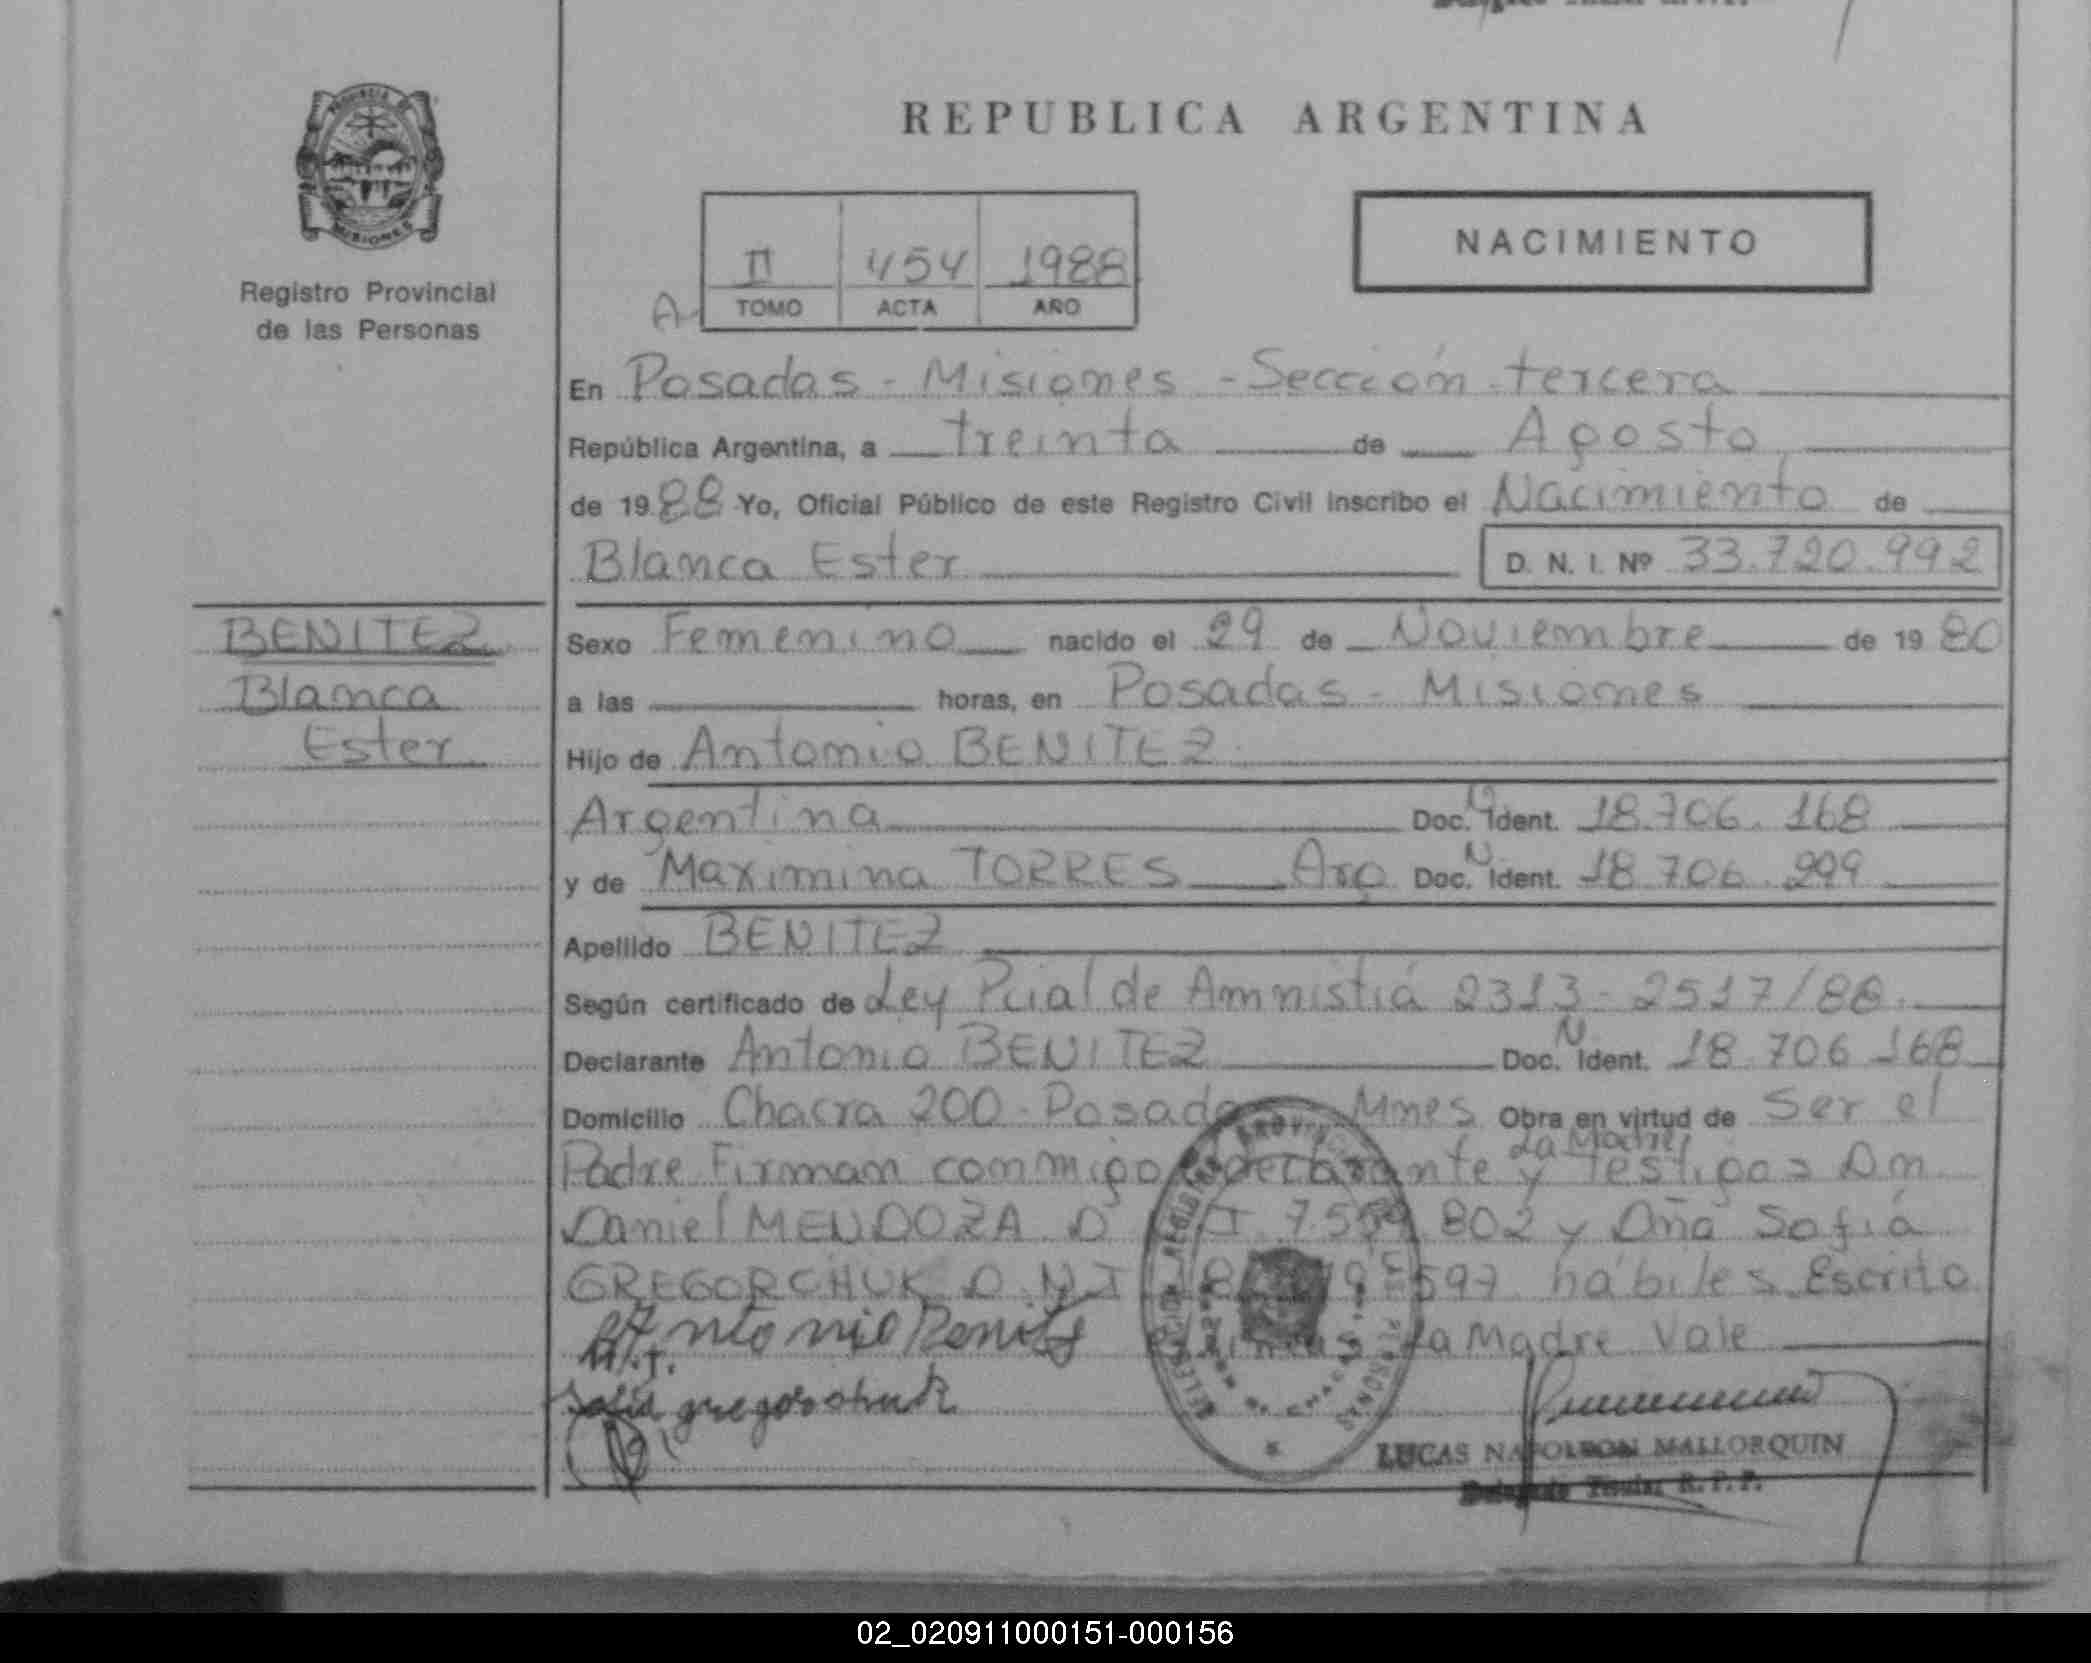 REPUBLICA ARGENTINA
PROVINCIA DE
MISIONES
Registro Provincial
de las Personas
NACIMIENTO
II 454 1988
A TOMO ACTA AÑO
En Posadas - Misiones - Sección tercera
República Argentina, a treinta de Agosto
de 1988 Yo, Oficial Público de este Registro Civil inscribo el Nacimiento de
Blanca Ester D. N. I. Nº 33.720.992
BENITEZ
Blanca
Ester
Sexo Femenino nacido el 29 de Noviembre de 1980
a las horas, en Posadas - Misiones
Hijo de Antonio BENITEZ
Argentina Doc. Ident. 18.706.168
y de Maximina TORRES Arg Doc. N Ident. 18.706.299
Apellido BENITEZ
Según certificado de Ley Pcial de Amnistiá 2313 - 2517/88.
Declarante Antonio BENITEZ Doc. N Ident. 18.706.168
Domicilio Chacra 200 - Posadas Mnes Obra en virtud de Ser el
La Madre
Padre Firman conmigo declarante y testigos Dn
Daniel MENDOZA D I 7.5 802 y Dña Sofiá
GREGORCHUK D.N.I 597 hábiles Escrito
La Madre Vale
Antonio Benitez
M.T.
Sofia gregorchuk
LUCAS NAPOLEON MALLORQUIN
Delegado Titular R.P.P.
02_020911000151-000156